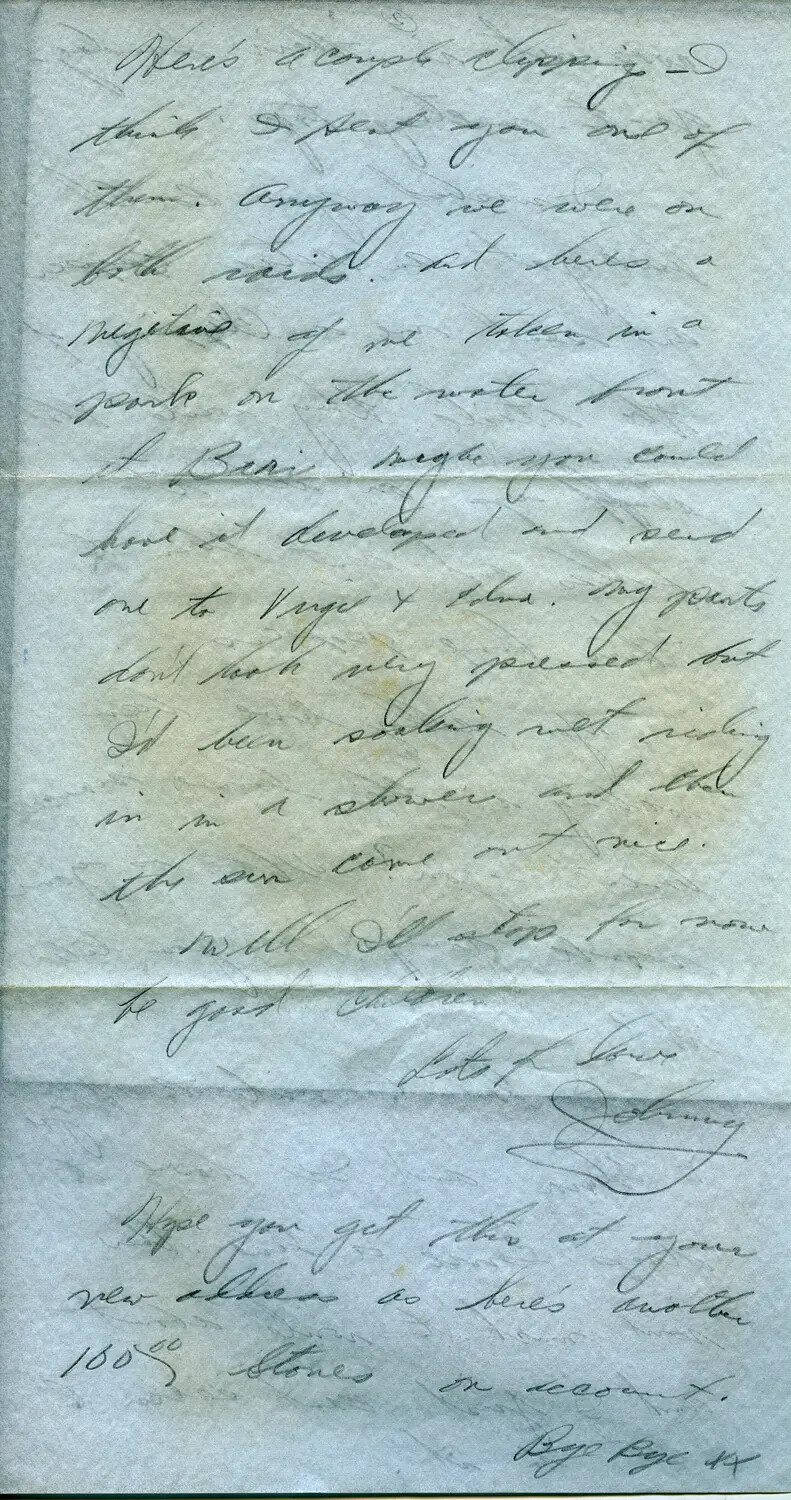 Here's a couple clippings – I
think I sent you one of
them. Anyway we were on
both raids. and here's a
negative of me taken in a
park on the water front
at Bari. maybe you could
have it developed and send
one to Virgil + Edna. My pants
don't look very pressed but
I'd been soaking wet riding
in in a shower and then
the sun came out nice.
Well I'll stop for now
be good children
Lots of love
Johnny
Hope you get this at your
new address as here's another
100⁰⁰ Stones on account.
Bye Bye xx